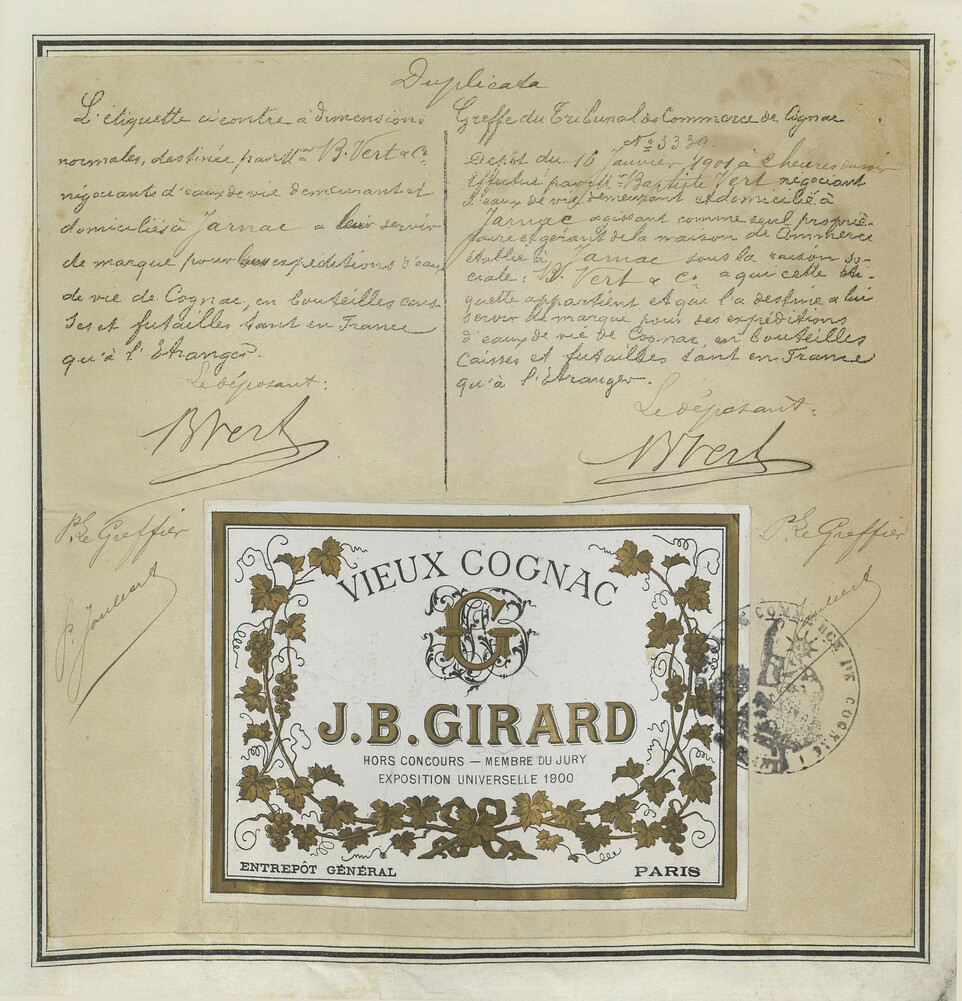 Duplicata
L'étiquette ci contre à dimensions
normales, destinée par Mrs B. Vert & Co
négociants d'eaux de vie demeurant et
domiciliés à Jarnac a leur servir
de marque pour expéditions d'eaux
de vie de Cognac, en bouteilles cais-
ses et futailles tant en France
qu'à l'Etranger.
Le déposant:
BVert
Greffe du Tribunal de Commerce de Cognac
No 3339.
Depot du 16 Janvier 1901 à 2 heures du soir
Effectué par Mr Baptiste Vert négociant
d'eaux de vie demeurant et domicilié à
Jarnac agissant comme seul proprié-
taire et gérant de la maison de Commerce
établie à Jarnac sous la raison so-
ciale: B. Vert & Co a qui cette éti-
quette appartient et qui l'a destinée a lui
servir de marque pour ses expéditions
d'eaux de vie de Cognac, en bouteilles
Caisses et futailles tant en France
qu'à l'Etranger.
Le déposant:
BVert
P. Le Greffier
P. Le Greffier
VIEUX COGNAC
G
J.B.GIRARD
HORS CONCOURS — MEMBRE DU JURY
EXPOSITION UNIVERSELLE 1900
ENTREPÔT GÉNÉRAL
PARIS
DE COMMERCE DE COGNAC